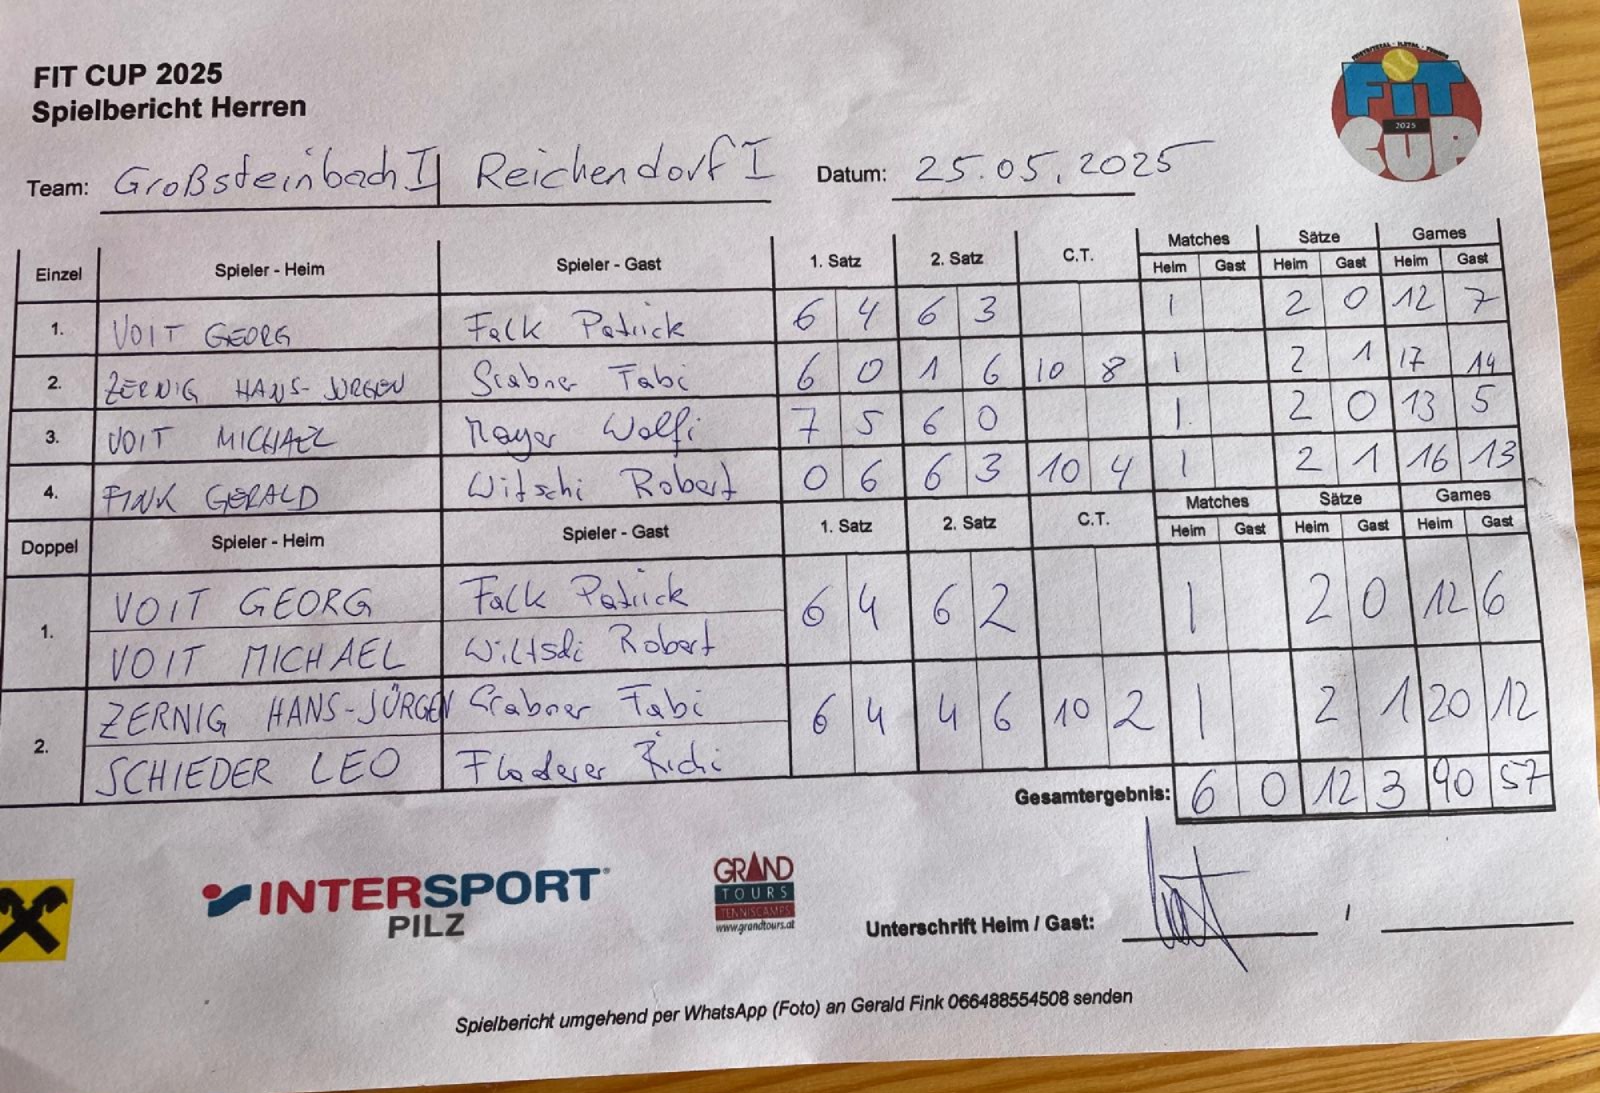 FIT CUP 2025
Spielbericht Herren
FIT CUP 2025
Team: Großsteinbach I Reichendorf I Datum: 25.05.2025
Einzel Spieler - Heim Spieler - Gast 1. Satz 2. Satz C.T. Matches Sätze Games
Heim Gast Heim Gast Heim Gast
1. VOIT GEORG Falk Patrick 6 4 6 3 1 2 0 12 7
2. ZERNIG HANS-JÜRGEN Grabner Fabi 6 0 1 6 10 8 1 2 1 17 14
3. VOIT MICHAEL Mayer Wolfi 7 5 6 0 1 2 0 13 5
4. FINK GERALD Witschi Robert 0 6 6 3 10 4 1 2 1 16 13
Doppel Spieler - Heim Spieler - Gast 1. Satz 2. Satz C.T. Matches Sätze Games
Heim Gast Heim Gast Heim Gast
1. VOIT GEORG Falk Patrick 6 4 6 2 1 2 0 12 6
VOIT MICHAEL Robert
2. ZERNIG HANS-JÜRGEN Grabner Fabi 6 4 4 6 10 2 1 2 1 20 12
SCHIEDER LEO Floderer Richi
Gesamtergebnis: 6 0 12 3 90 57
INTERSPORT
PILZ
GRAND
TOURS
TENNISCAMPS
www.grandtours.at
Unterschrift Heim / Gast: /
Spielbericht umgehend per WhatsApp (Foto) an Gerald Fink 066488554508 senden